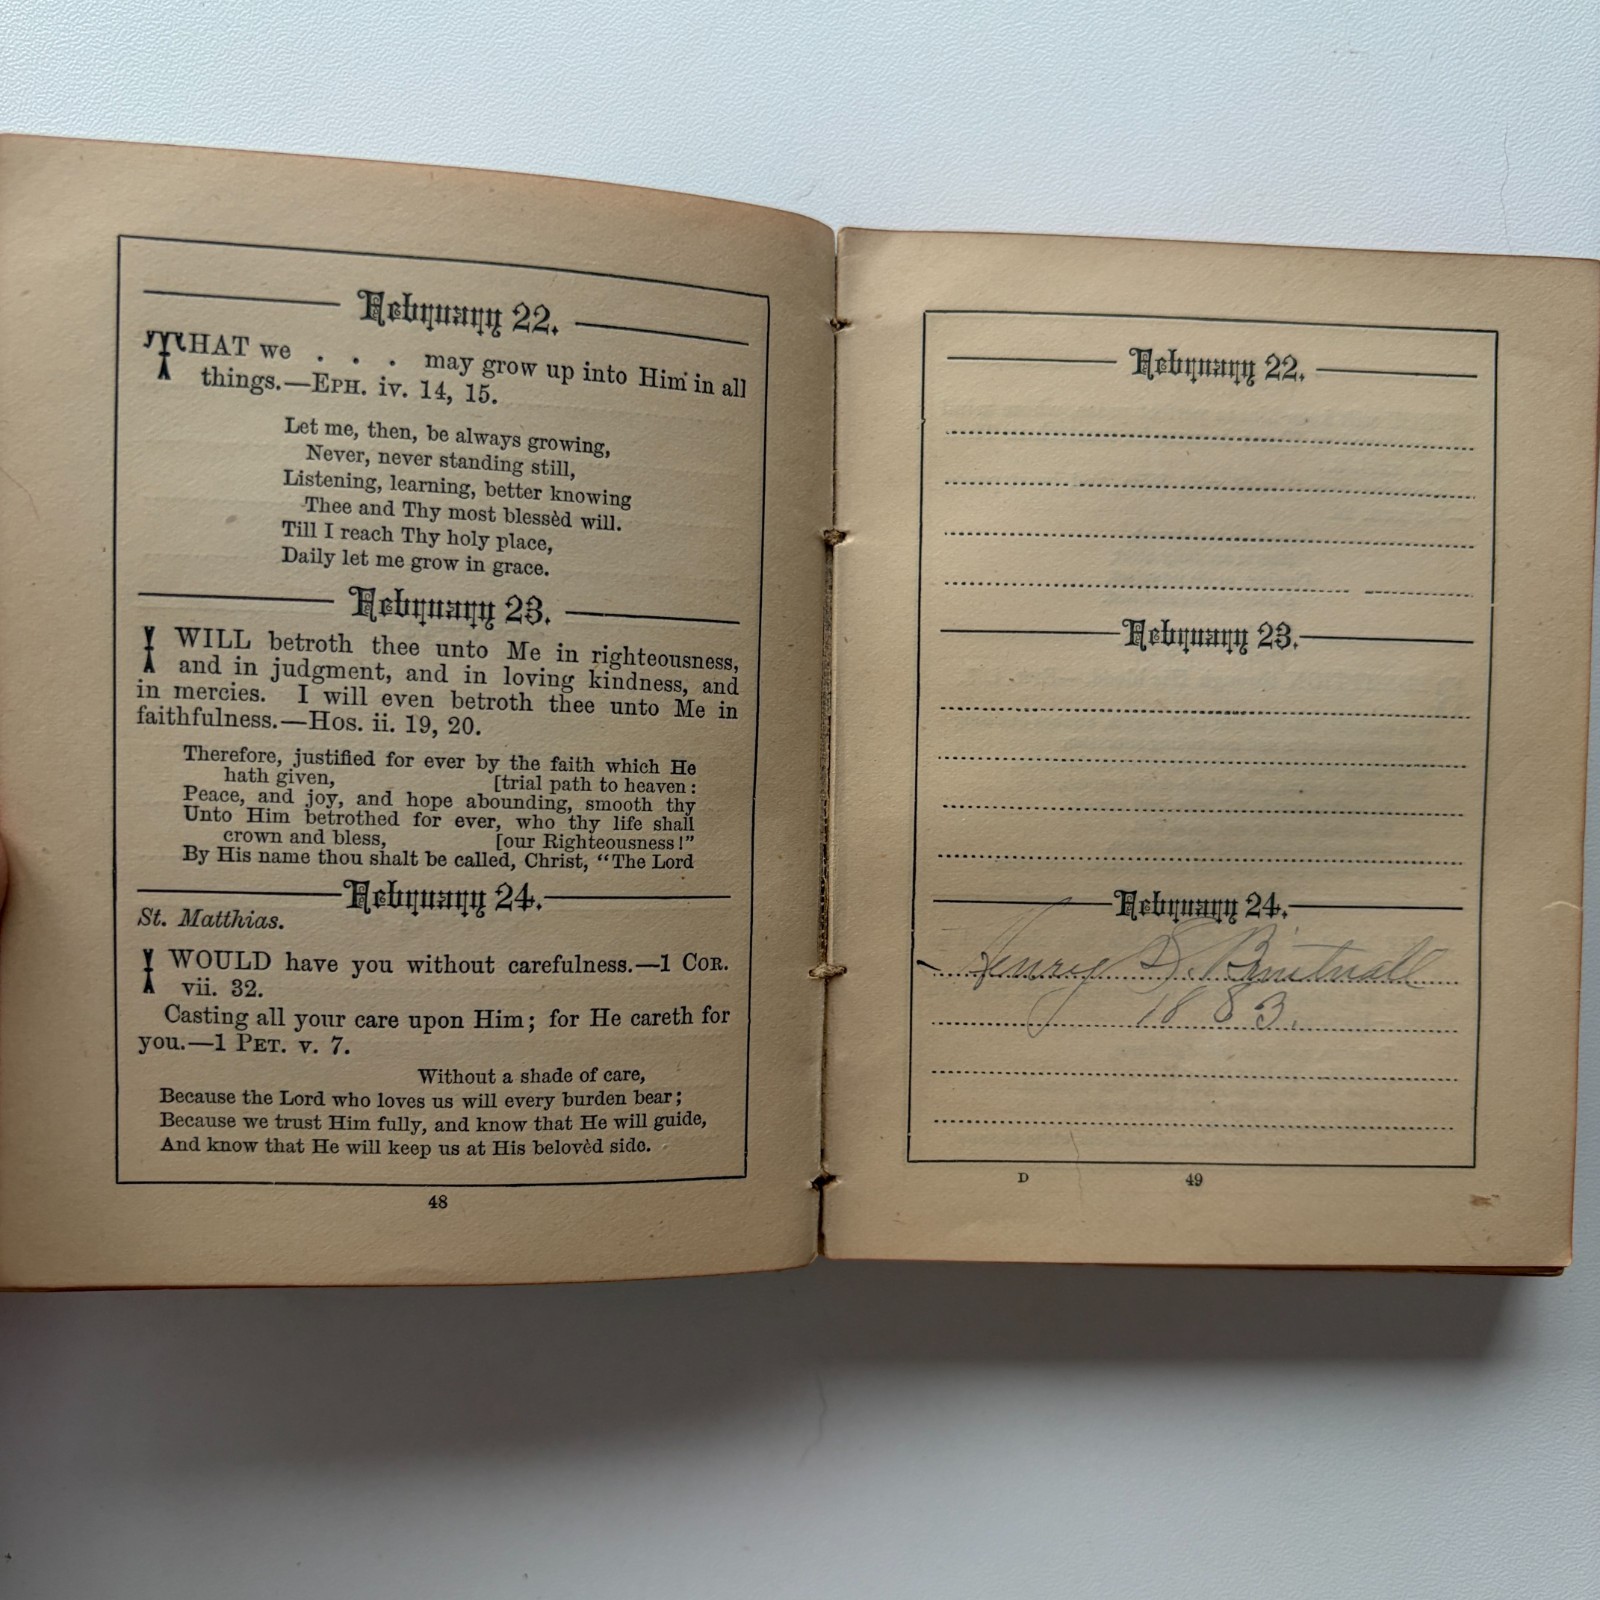 February 22.
THAT we . . . may grow up into Him in all
things.—EPH. iv. 14, 15.
Let me, then, be always growing,
Never, never standing still,
Listening, learning, better knowing
Thee and Thy most blessèd will.
Till I reach Thy holy place,
Daily let me grow in grace.
February 23.
I WILL betroth thee unto Me in righteousness,
and in judgment, and in loving kindness, and
in mercies. I will even betroth thee unto Me in
faithfulness.—HOS. ii. 19, 20.
Therefore, justified for ever by the faith which He
hath given, [trial path to heaven:
Peace, and joy, and hope abounding, smooth thy
Unto Him betrothed for ever, who thy life shall
crown and bless, [our Righteousness!"
By His name thou shalt be called, Christ, "The Lord
February 24.
St. Matthias.
I WOULD have you without carefulness.—1 COR.
vii. 32.
Casting all your care upon Him; for He careth for
you.—1 PET. v. 7.
Without a shade of care,
Because the Lord who loves us will every burden bear;
Because we trust Him fully, and know that He will guide,
And know that He will keep us at His belovèd side.
48
February 22.
February 23.
February 24.
Henry
1883.
D 49